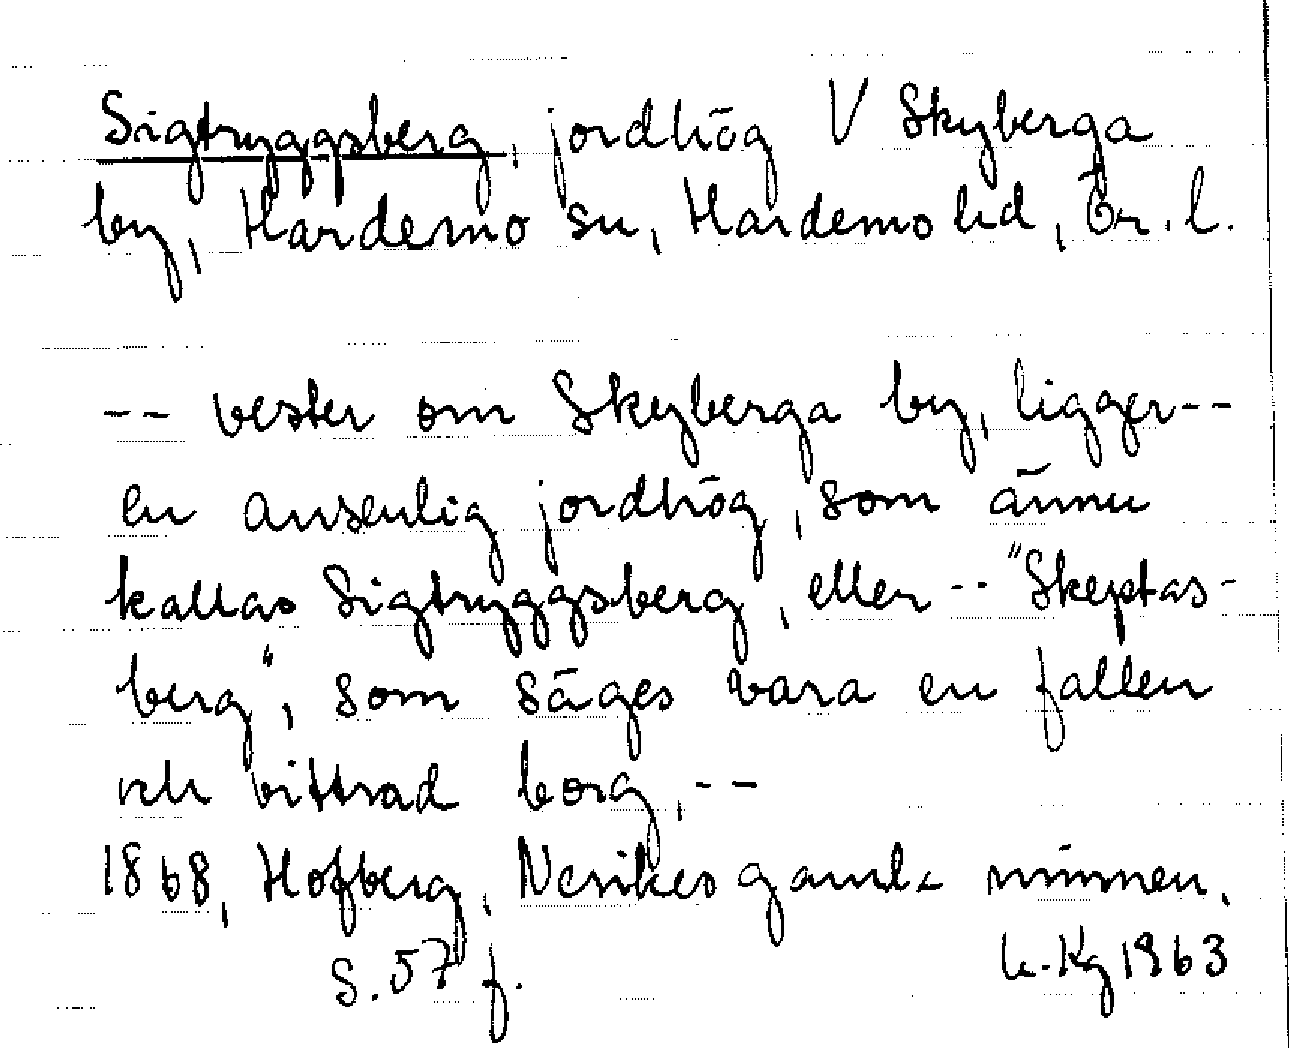 Sigtryggsberg, jordhög V Skyberga
by, Hardemo sn, Hardemo hd, Ör. l.
-- vester om Skyberga by, ligger--
en ansenlig jordhög, som ännu
kallas Sigtryggsberg, eller -- "Skeptas-
berg", som säges vara en fallen
och vittrad borg, --
1868, Hofberg, Nerikes gamla minnen,
S. 57 f.
K-Kg 1963